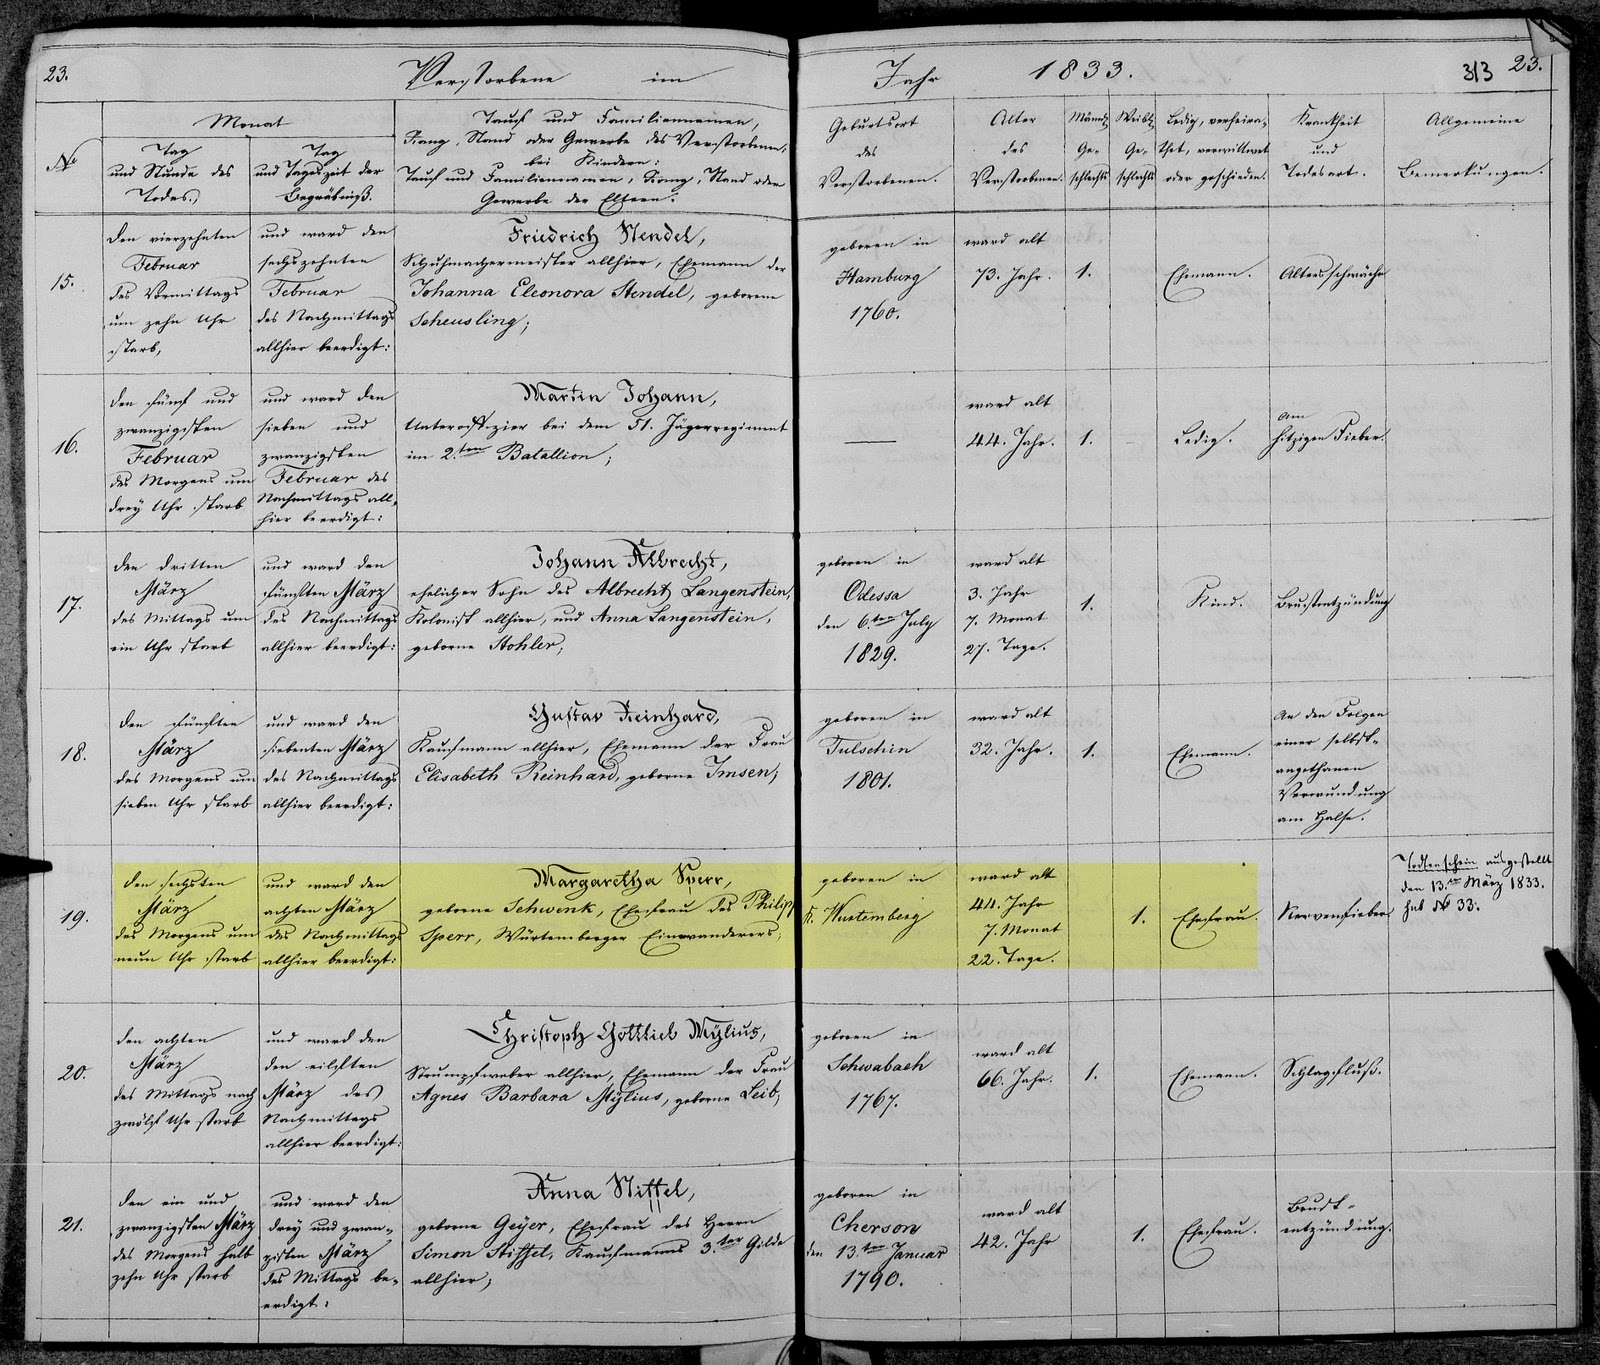 23.
Verstorbene im
Jahr 1833.
313 23.
No
Monat
Tag
und Stunde des
Todes.
Tag
und Tageszeit der
Begräbniß.
Tauf und Familiennamen,
Rang, Stand oder Gewerbe des Verstorbenen,
bei Kindern:
Tauf und Familiennamen, Rang, Stand oder
Gewerbe der Eltern.
Geburtsort
des
Verstorbenen.
Alter
des
Verstorbenen.
Männl.
Ge-
schlechts
Weibl.
Ge-
schlechts
Ledig, verheira-
thet, verwittwet
oder geschieden.
Krankheit
und
Todesart.
Allgemeine
Bemerkungen.
15.
den vierzehnten
Februar
des Vormittags
um zehn Uhr
starb,
und ward den
sechszehnten
Februar
des Nachmittags
allhier beerdigt:
Friedrich Stendel,
Schuhmachermeister allhier, Ehemann der
Johanna Eleonora Stendel, geborene
Scheusling;
geboren in
Hamburg
1760.
ward alt
73. Jahr.
1.
Ehemann.
Altersschwäche
16.
den fünf und
zwanzigsten
Februar
des Morgens um
drey Uhr starb
und ward den
sieben und
zwanzigsten
Februar des
Nachmittags all-
hier beerdigt:
Martin Johann,
Unteroffizier bei dem 51. Jägerregiment
im 2.ten Batallion;
ward alt
44. Jahr.
1.
Ledig.
am
hitzigen Fieber.
17.
den dritten
März
des Mittags um
ein Uhr starb
und ward den
fünften März
des Nachmittags
allhier beerdigt:
Johann Albrecht,
ehelicher Sohn des Albrecht Langenstein,
Kolonist allhier, und Anna Langenstein,
geborne Stohler,
geboren in
Odessa
den 6.ten July
1829.
ward alt
3. Jahr
7. Monat
27. Tage.
1.
Kind.
Brustentzündung
18.
den fünften
März
des Morgens um
sieben Uhr starb
und ward den
siebenten März
des Nachmittags
allhier beerdigt:
Gustav Reinhard,
Kaufmann allhier, Ehemann der Frau
Elisabeth Reinhard, geborne Imsen;
geboren in
Tulschin
1801.
ward alt
32. Jahr.
1.
Ehemann.
An den Folgen
einer selbst-
angethanen
Verwundung
am Halse.
19.
den sechsten
März
des Morgens um
neun Uhr starb
und ward den
achten März
des Nachmittags
allhier beerdigt:
Margaretha Sperr,
geborne Schwenk, Ehefrau des Philipp
Sperr, Würtemberger Einwanderers;
geboren in
K. Wurtemberg
ward alt
44. Jahr
7. Monat
22. Tage.
1.
Ehefrau.
Nervenfieber
Todtenschein ausgestellt
den 13.ten März 1833.
sub No 33.
20.
den achten
März
des Mittags nach
zwölf Uhr starb
und ward den
den eilften
März des
Nachmittags
allhier beerdigt:
Christoph Gottlieb Mylius,
Strumpfweber allhier, Ehemann der Frau
Agnes Barbara Mylius, geborne Leib;
geboren in
Schwabach
1767.
ward alt
66. Jahr.
1.
Ehemann.
Schlagfluß.
21.
den ein und
zwanzigsten März
des Morgens halb
zehn Uhr starb
und ward den
drey und zwan-
zigsten März
des Mittags be-
erdigt:
Anna Stiffel,
geborne Geyer, Ehefrau des Herrn
Simon Stiffel, Kaufmanns 3.ter Gilde
allhier;
geboren in
Cherson
den 13.ten Januar
1790.
ward alt
42. Jahr
1.
Ehefrau.
Brust-
entzündung.